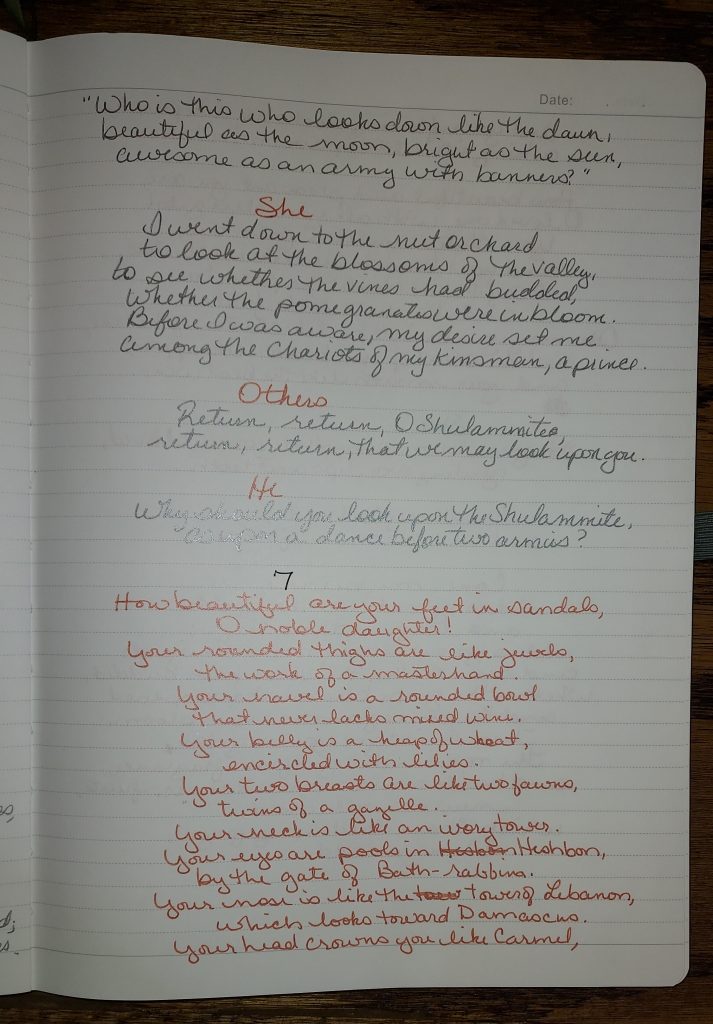 Date:
"Who is this who looks down like the dawn,
beautiful as the moon, bright as the sun,
awesome as an army with banners?"
She
I went down to the nut orchard
to look at the blossoms of the valley,
to see whether the vines had budded,
whether the pomegranates were in bloom.
Before I was aware, my desire set me
among the chariots of my kinsman, a prince.
Others
Return, return, O Shulammite,
return, return, that we may look upon you.
He
Why should you look upon the Shulammite,
as upon a dance before two armies?
7
How beautiful are your feet in sandals,
O noble daughter!
Your rounded thighs are like jewels,
the work of a master hand.
Your navel is a rounded bowl
that never lacks mixed wine.
Your belly is a heap of wheat,
encircled with lilies.
Your two breasts are like two fawns,
twins of a gazelle.
Your neck is like an ivory tower.
Your eyes are pools in Heshbon,
by the gate of Bath-rabbim.
Your nose is like the tower of Lebanon,
which looks toward Damascus.
Your head crowns you like Carmel,